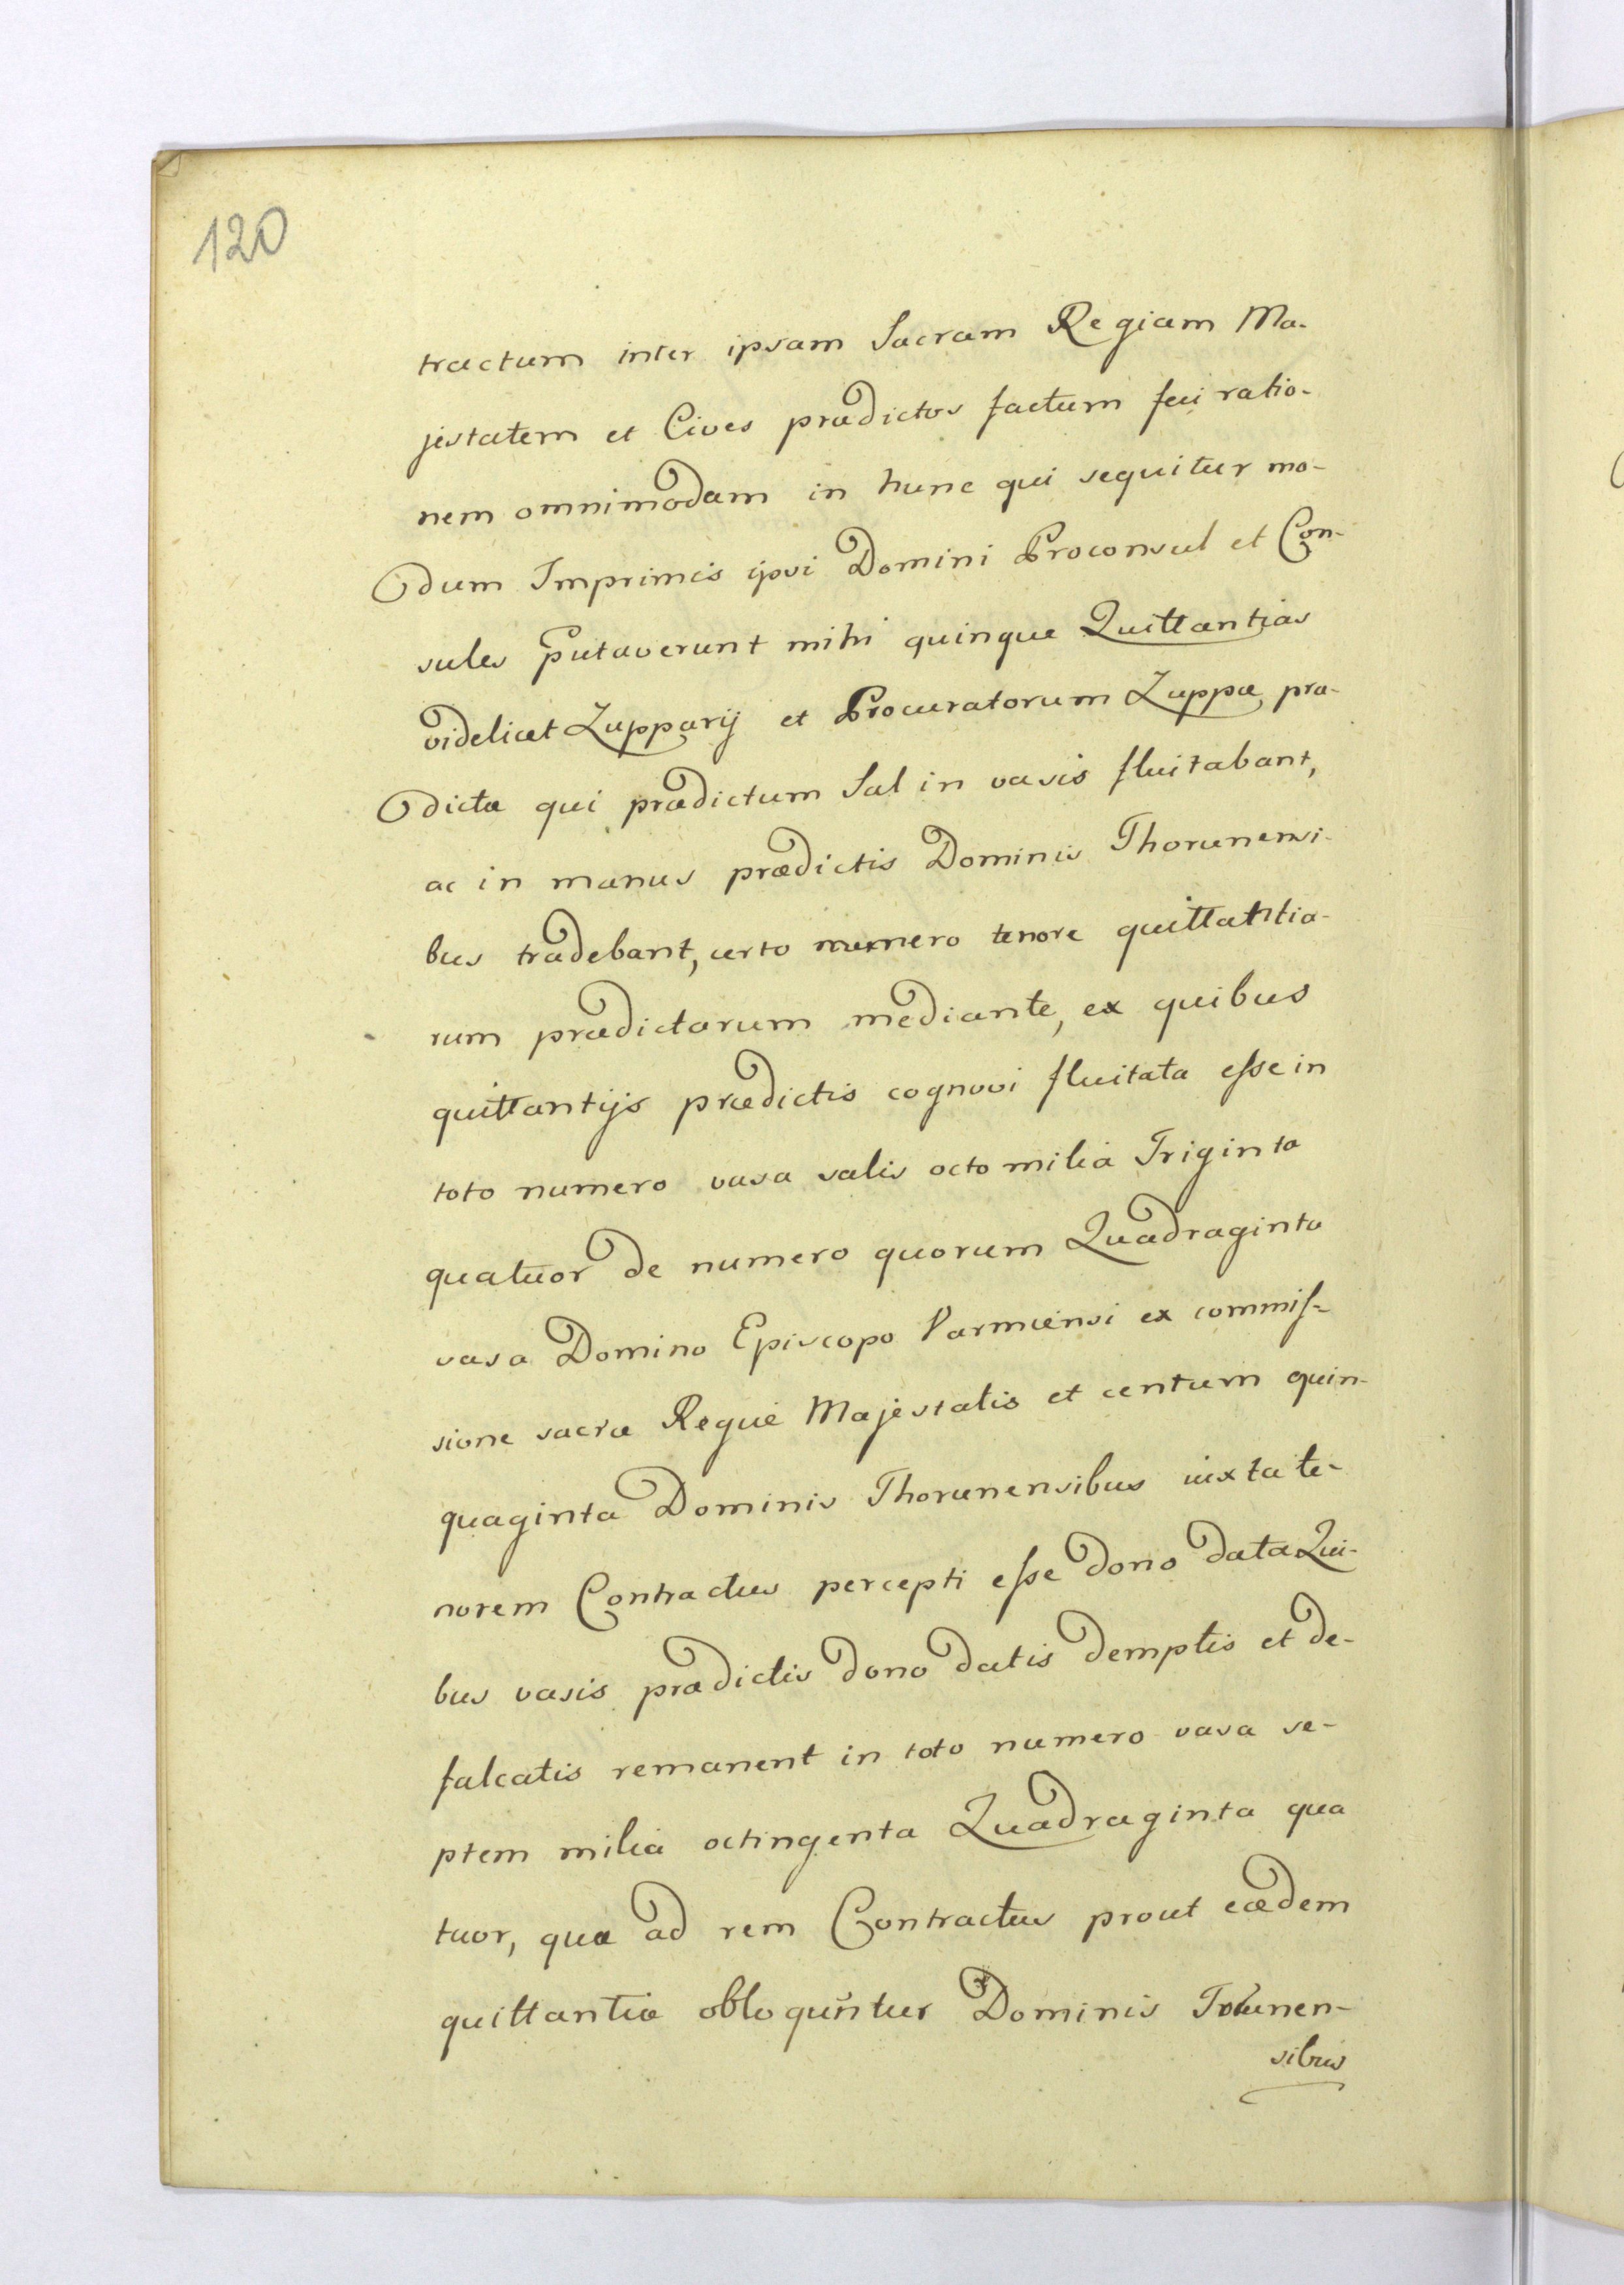 120
tractum inter ipsam Sacram Regiam Ma-
jestatem et Cives prædictos factum feci ratio-
nem omnimodam in hunc qui sequitur mo-
dum Imprimis ipsi Domini Proconsul et Con-
sules Putaverunt mihi quinque Quittantias
videlicet Zupparij et Procuratorum Zuppæ præ-
dictæ qui prædictum Sal in vasis fluitabant,
ac in manus prædictis Dominis Thorunensi-
bus tradebant, certo numero tenore quittantia-
rum prædictarum mediante, ex quibus
quittantijs prædictis cognovi fluitata esse in
toto numero vasa salis octo milia Triginta
quatuor de numero quorum Quadraginta
vasa Domino Episcopo Varmiensi ex commis-
sione sacræ Regiæ Majestatis et centum quin-
quaginta Dominis Thorunensibus iuxta te-
norem Contractus percepti esse dono data Qui-
bus vasis prædictis dono datis demptis et de-
falcatis remanent in toto numero vasa se-
ptem milia octingenta Quadraginta qua
tuor, quæ ad rem Contractus prout eædem
quittantiæ obloquntur Dominis Torunen-
sibus